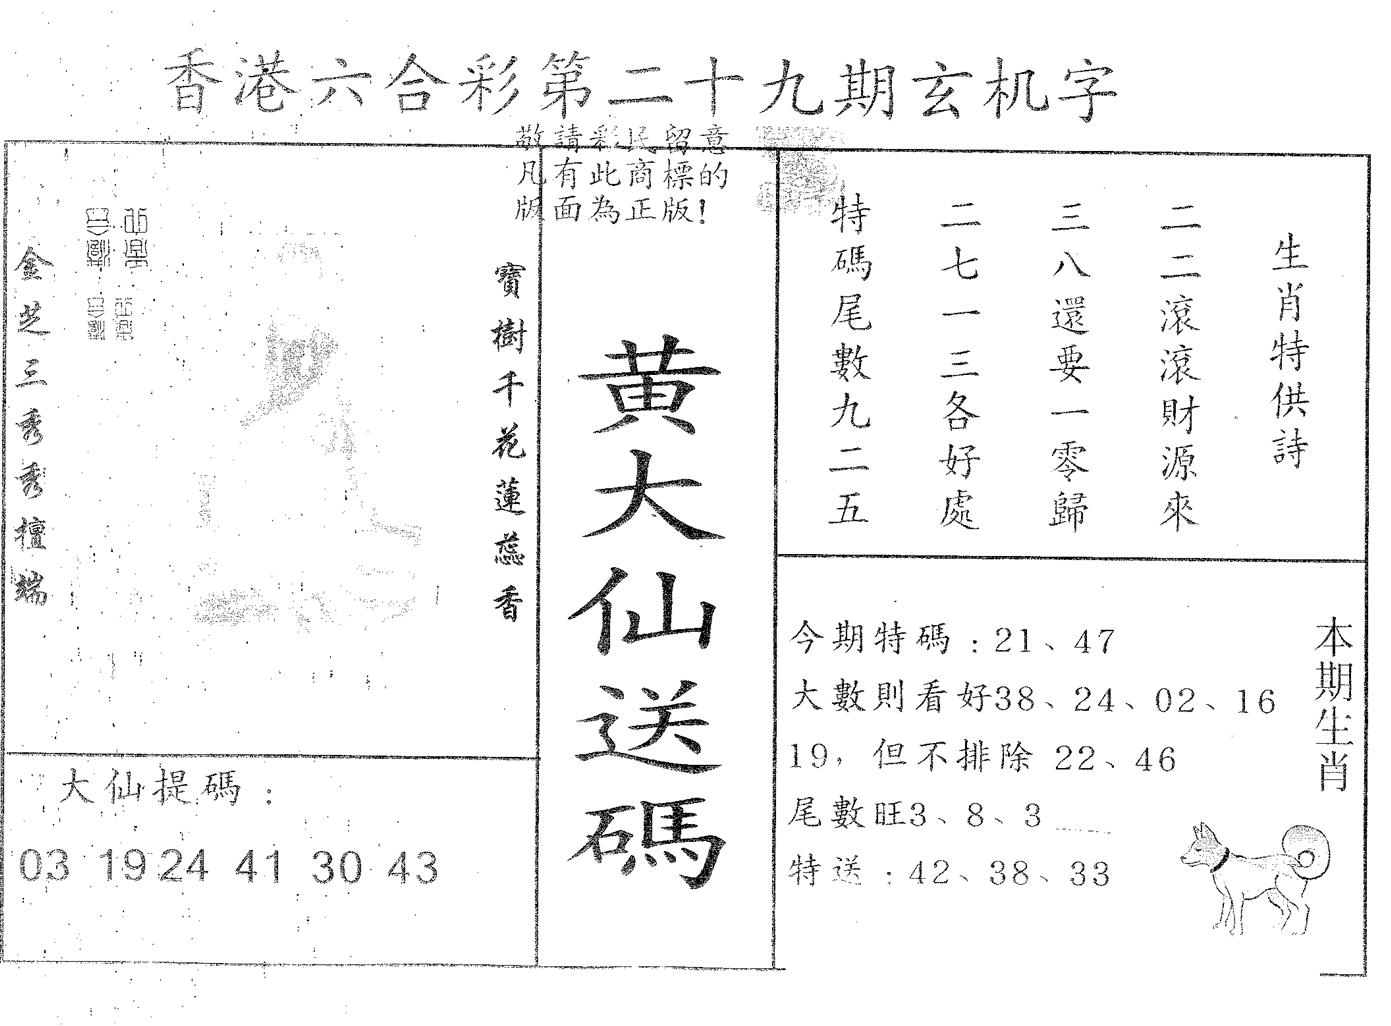 香港六合彩第二十九期玄机字
敬請彩民留意
凡有此商標的
版面為正版!
生肖特供詩
二二滾滾財源來
三八還要一零歸
二七一三各好處
特碼尾數九二五
黄大仙送碼
寶樹千花蓮蕊香
金芝三秀秀檀端
大仙提碼:
03 19 24 41 30 43
本期生肖
今期特碼:21、47
大數則看好38、24、02、16
19,但不排除 22、46
尾數旺3、8、3
特送:42、38、33